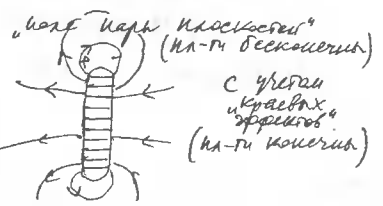 „поле пары плоскостей"
(пл-ти бесконечны)
с учетом
„краевых
эффектов"
(пл-ти конечны)